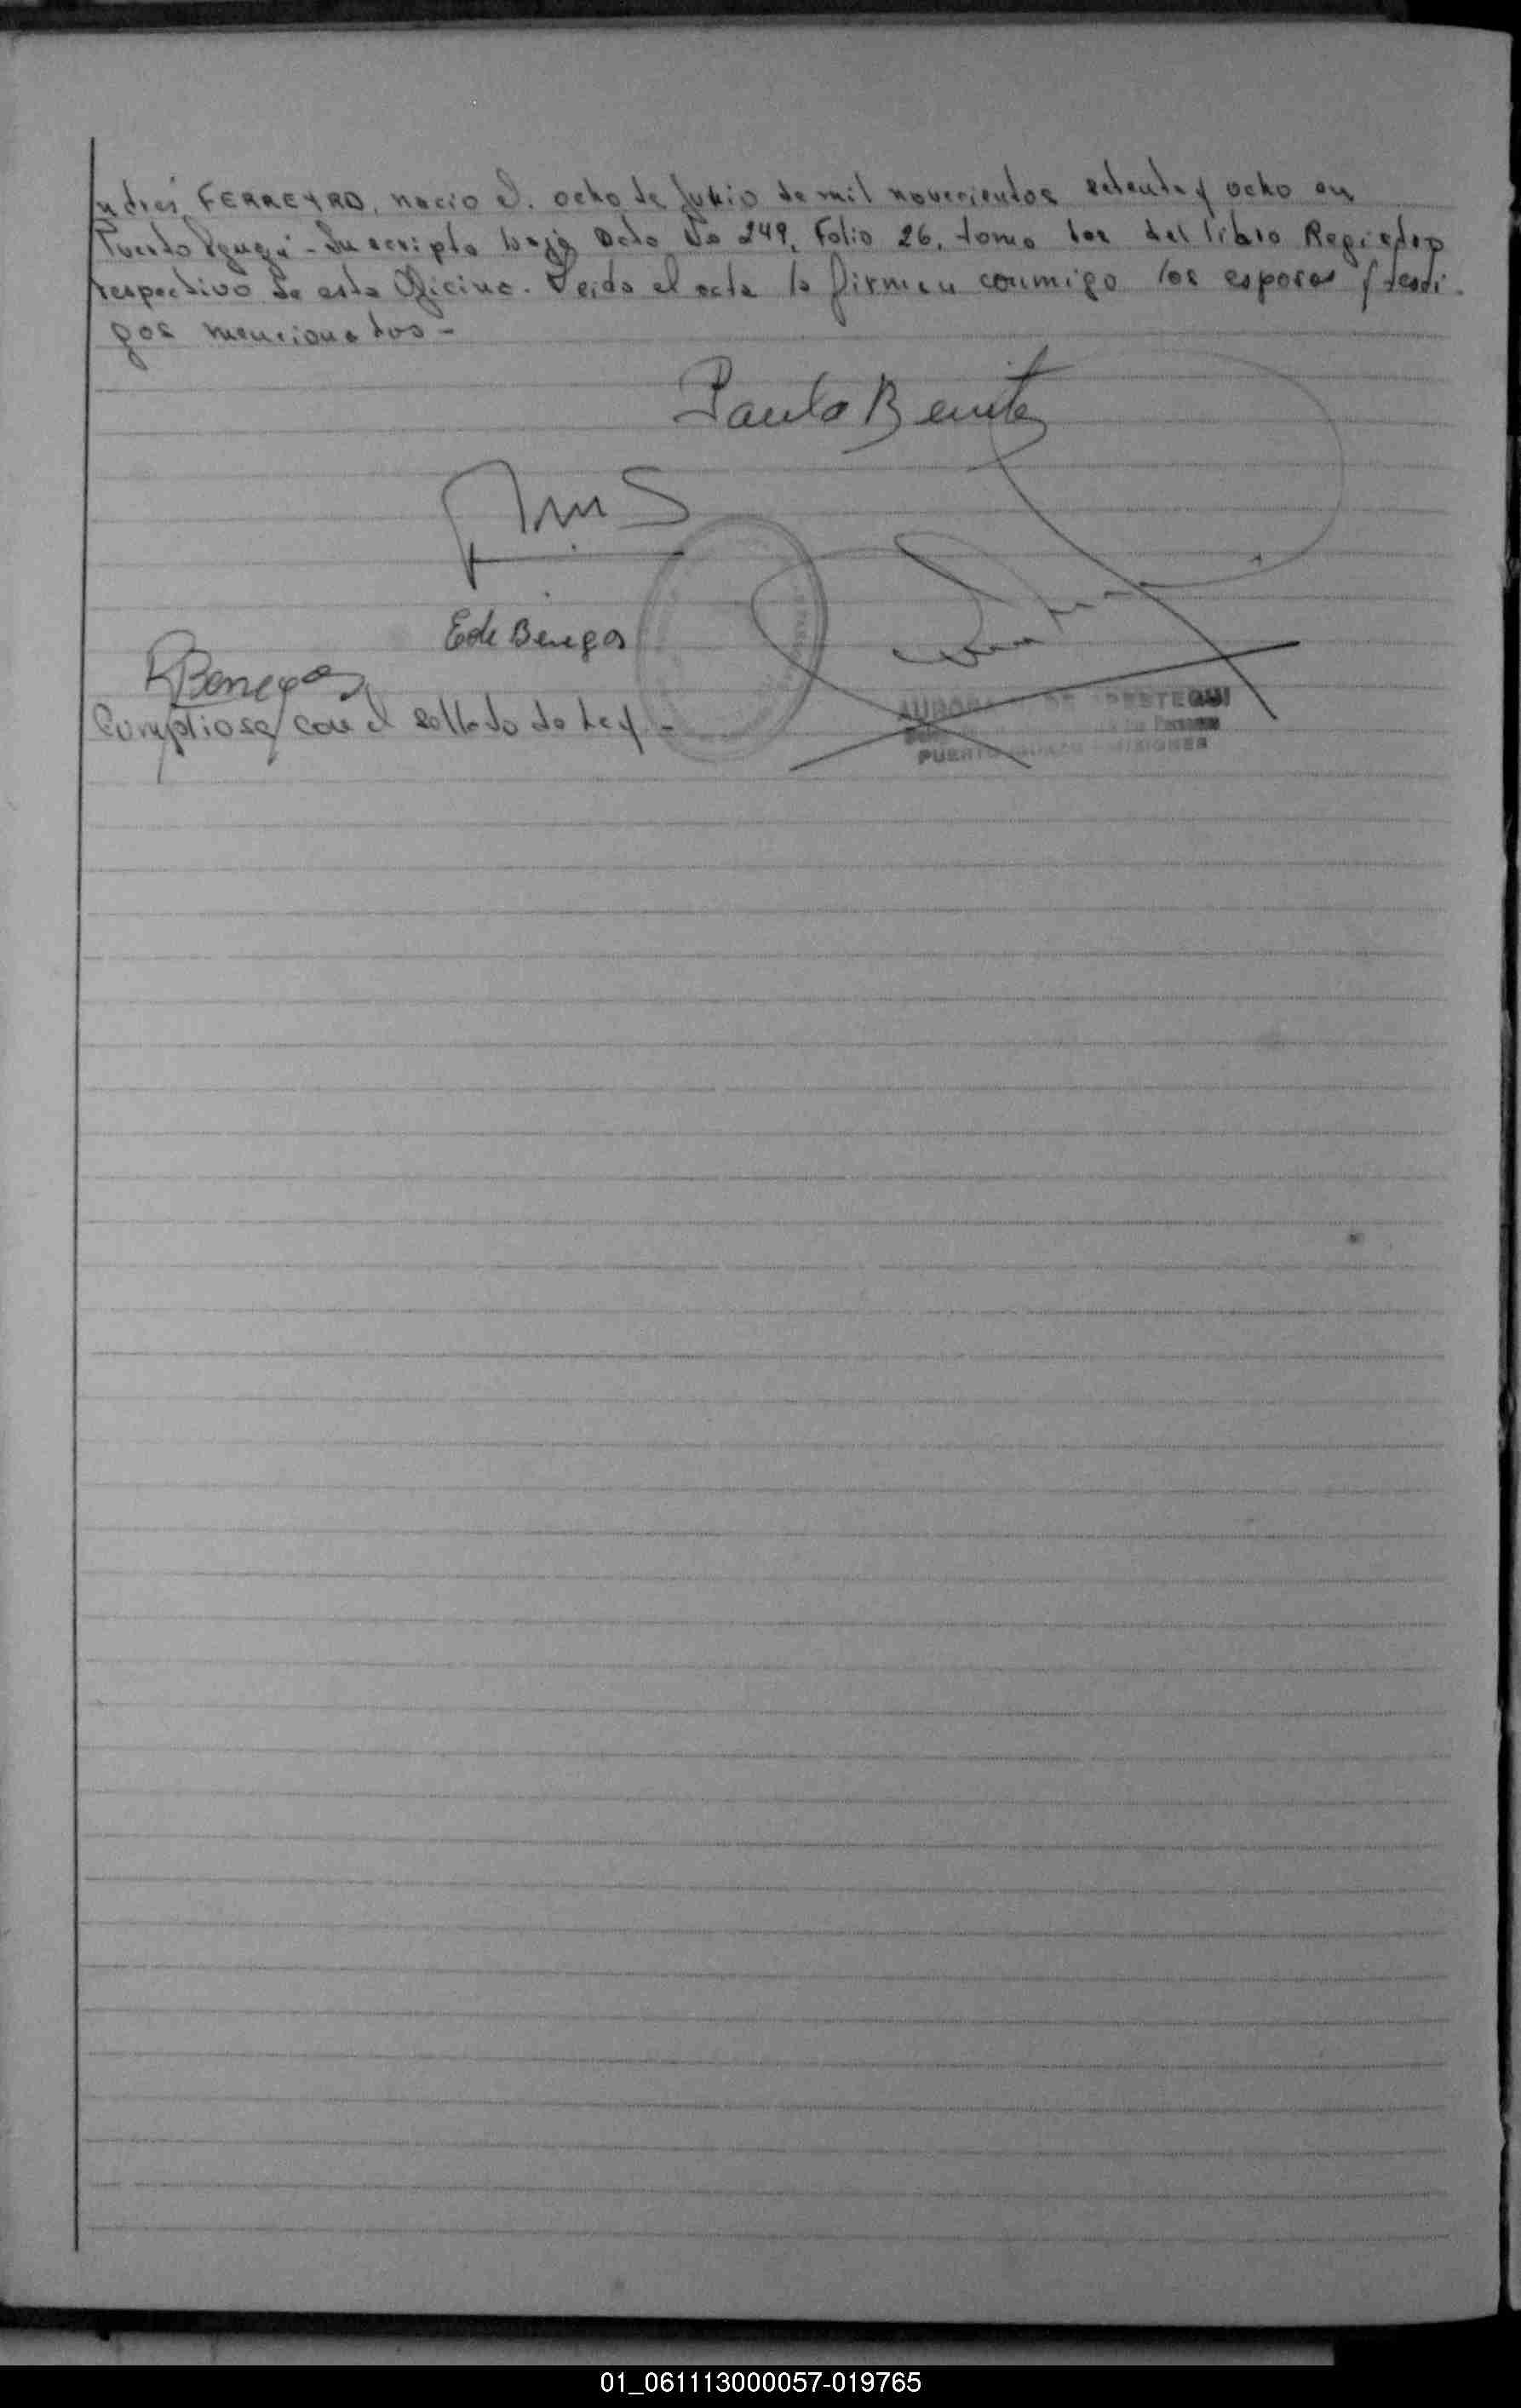 ndrés FERREYRO, nacio el ocho de Junio de mil novecientos setenta y ocho en
Puerto Iguazú - Inscripto bajo Acta No 249, Folio 26, tomo del libro Registro
respectivo de esta Oficina. Leida el acta la firman conmigo los esposos y testi-
gos mencionados -
Paula Benitez
Ede Benegas
RBenegas
Cumpliose con el sellado de Ley -
AURORA DE APESTEGUI
PUERTO IGUAZU - MISIONES
01_061113000057-019765